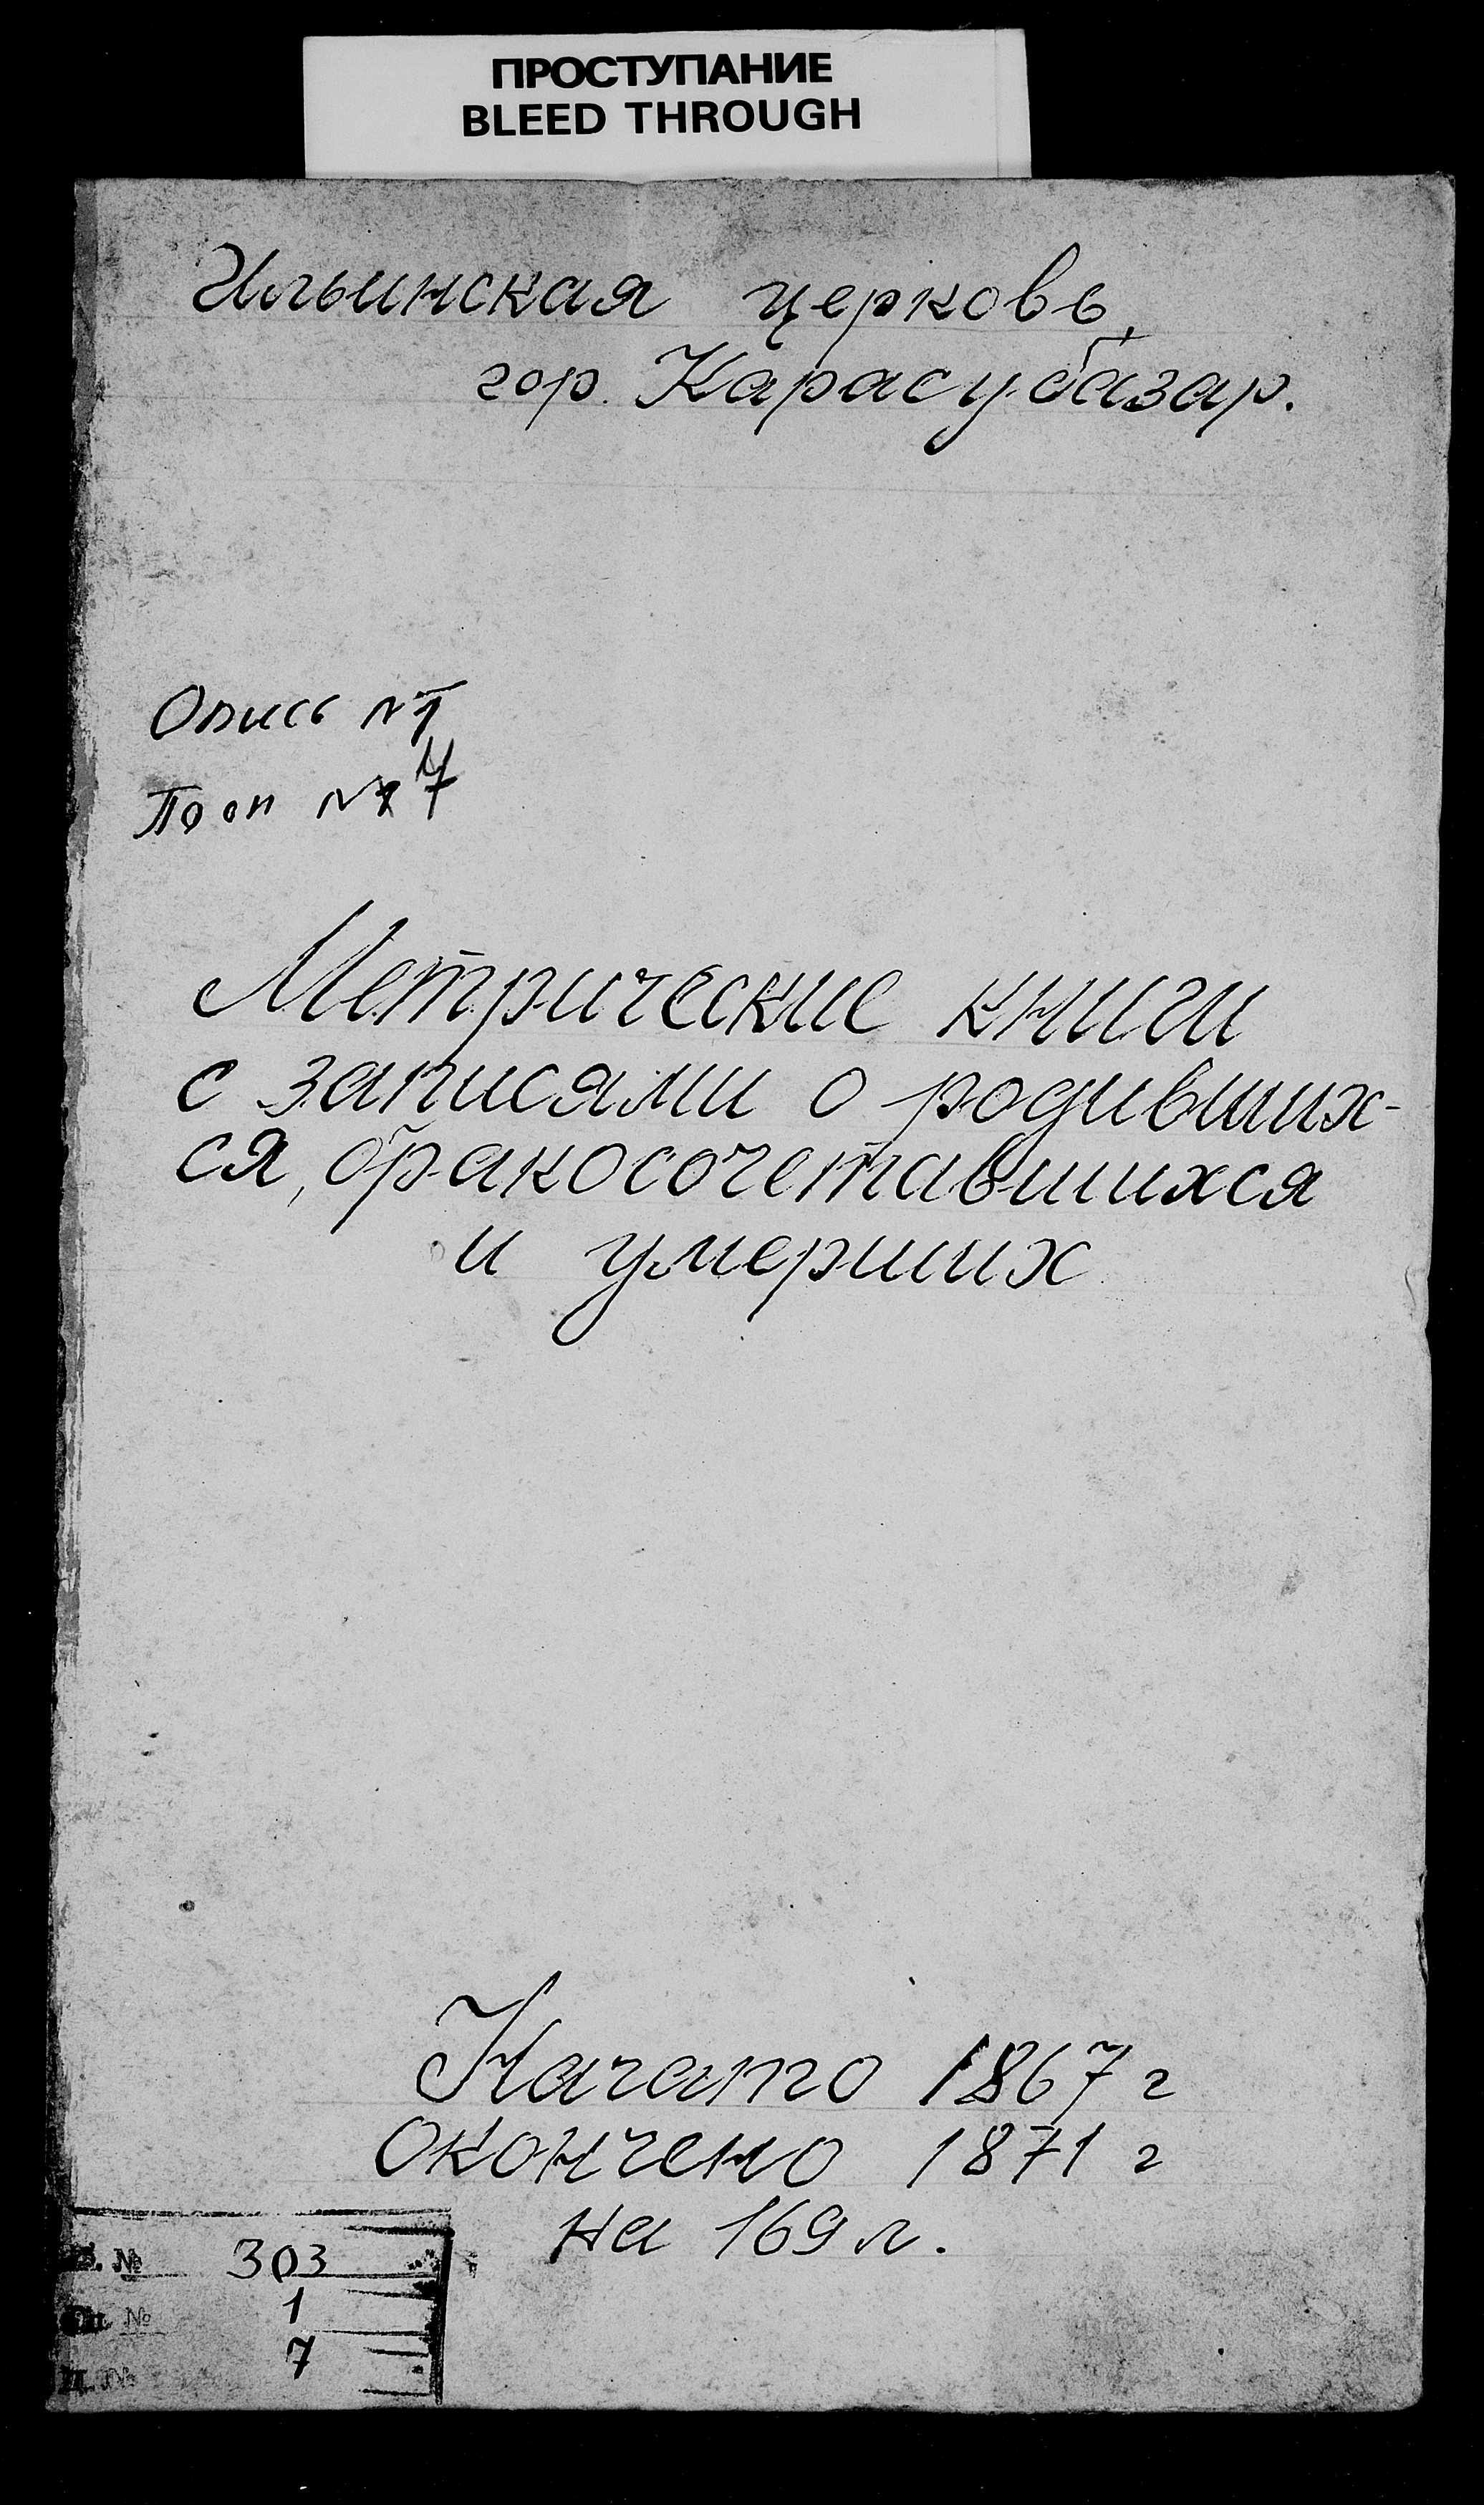 ПРОСТУПАНИЕ
BLEED THROUGH
Ильинская церковь,
гор. Карасубазар.
Опись №1
По оп № 7
Метрические книги
с записями о родивших-
ся, бракосочетавшихся
и умерших
Начато 1867 г
окончено 1871 г
на 169 л.
№ 303
№ 1
№ 7